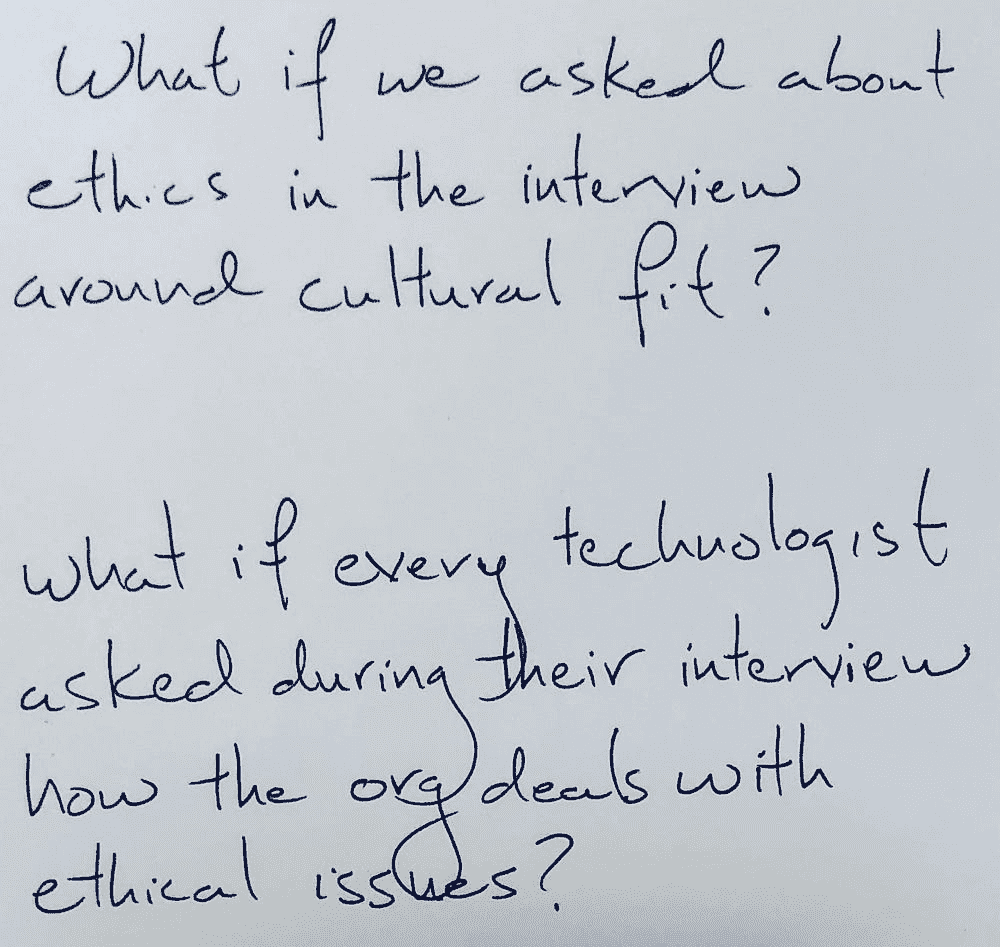 What if we asked about
ethics in the interview
around cultural fit?
what if every technologist
asked during their interview
how the org deals with
ethical issues?